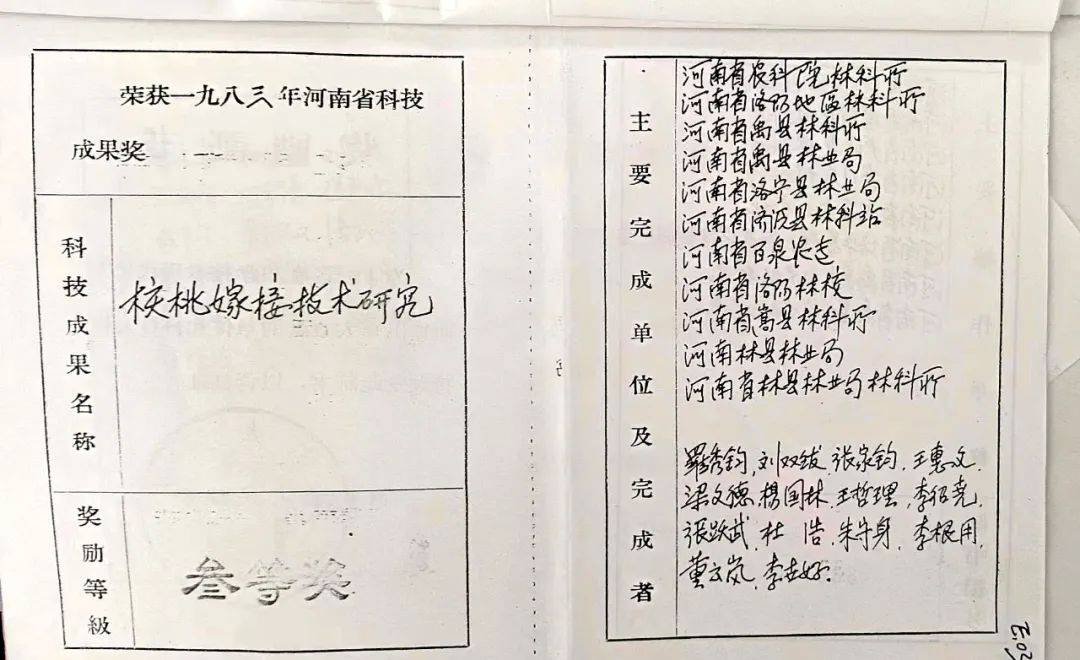 荣获一九八三年河南省科技
成果奖
科技成果名称
核桃嫁接技术研究
奖励等級
叁等奖
主要完成单位及完成者
河南省农科院林科所
河南省洛阳地区林科所
河南省禹县林科所
河南省禹县林业局
河南省洛宁县林业局
河南省济源县林科站
河南省百泉农专
河南省洛阳林校
河南省嵩县林科所
河南林县林业局
河南省林县林业局林科所
罗秀钧、刘双绂、张家钧、王惠文、
梁文德、楊国林、王哲理、李绍尧、
張跃武、杜 浩、朱守身、李根用、
董文岚、李芸好.